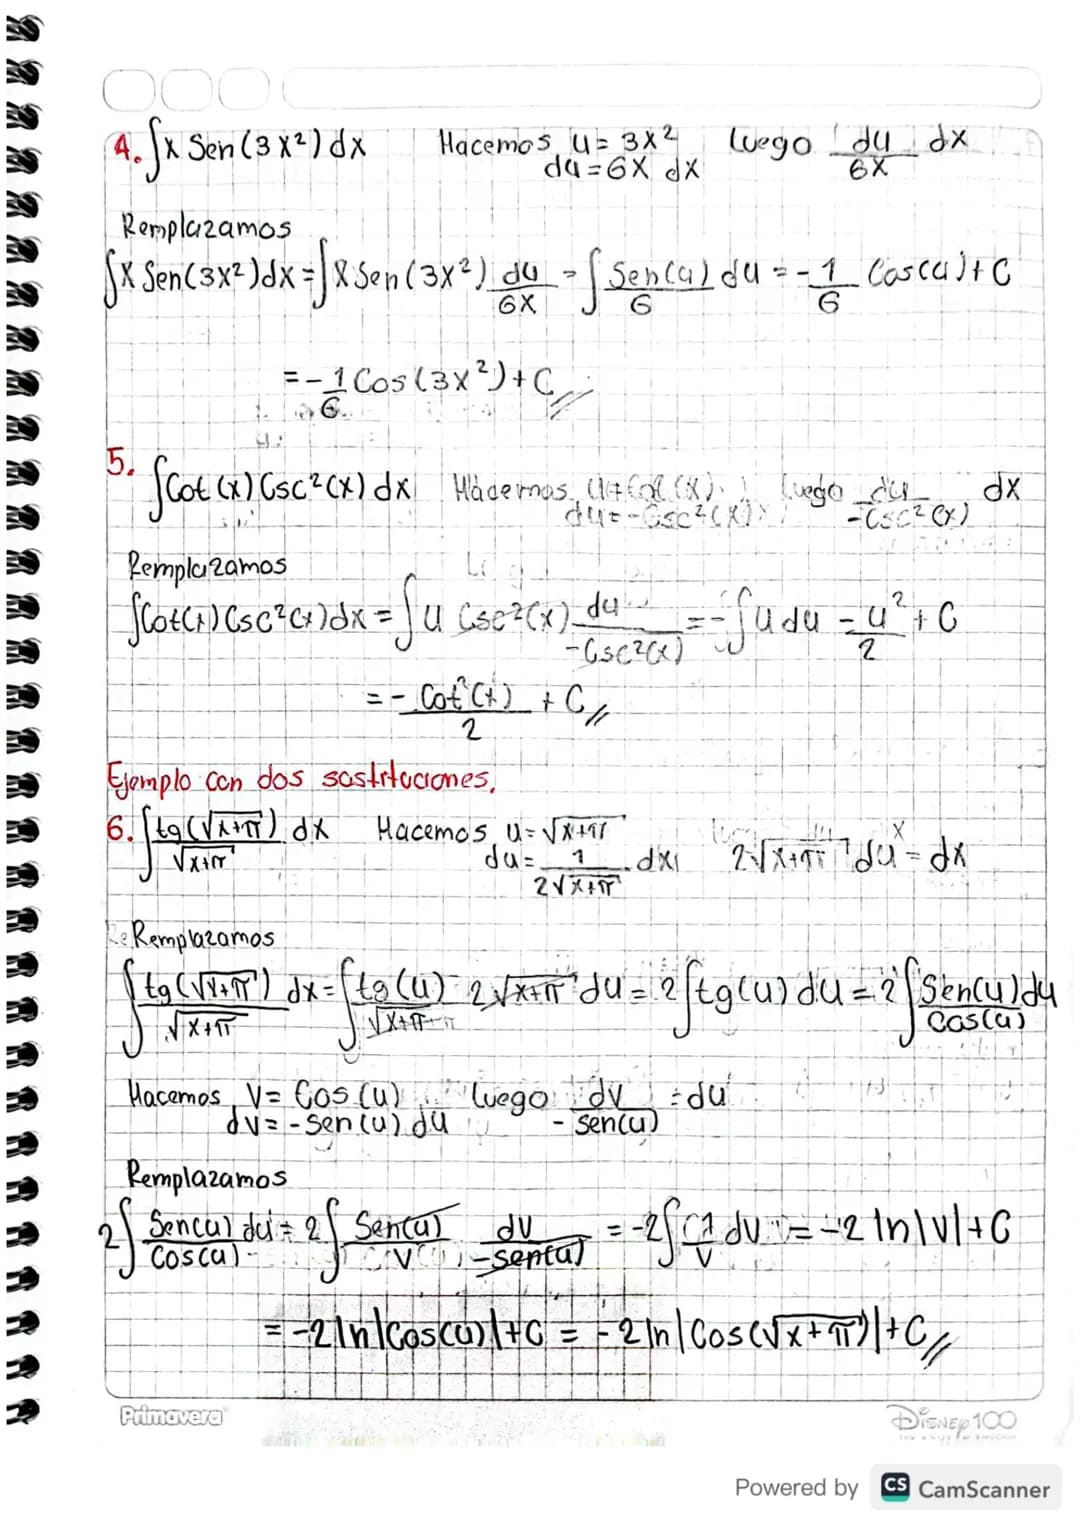 4. ∫x Sen(3x²)dx Hacemos u = 3x² luego du/6x dx
du = 6x dx
Remplazamos
∫x Sen(3x²)dx = ∫x Sen(3x²) du/6x = ∫Sen(u)/6 du = -1/6 Cos(u)+C
= -1/6 Cos(3x²)+C//
5. ∫Cot(x) Csc²(x) dx Hacemos u = Cot(x) luego du/-Csc²(x) dx
du = -Csc²(x)
Remplazamos
∫Cot(x) Csc²(x)dx = ∫u Csc²(x) du/-Csc²(x) = -∫u du - u²/2 + C
= - Cot²(x)/2 + C//
Ejemplo con dos sustituciones.
6. ∫tg(√x+π)/√x+π dx Hacemos u = √x+π 2√x+π du = dx
du = 1/2√x+π dx
Remplazamos
∫tg(√x+π)/√x+π dx = ∫tg(u)/√x+π 2√x+π du = 2∫tg(u) du = 2∫Sen(u)du/Cos(u)
Hacemos v = Cos(u) luego dv/-sen(u) = du
dv = -sen(u) du
Remplazamos
2∫Sen(u)/Cos(u) du = 2∫Sen(u)/v dv/-sen(u) = -2∫1/v dv = -2 ln|v|+C
= -2ln|Cos(u)|+C = -2ln|Cos(√x+π)|+C//
Primavera
DISNEY100
Powered by CS CamScanner